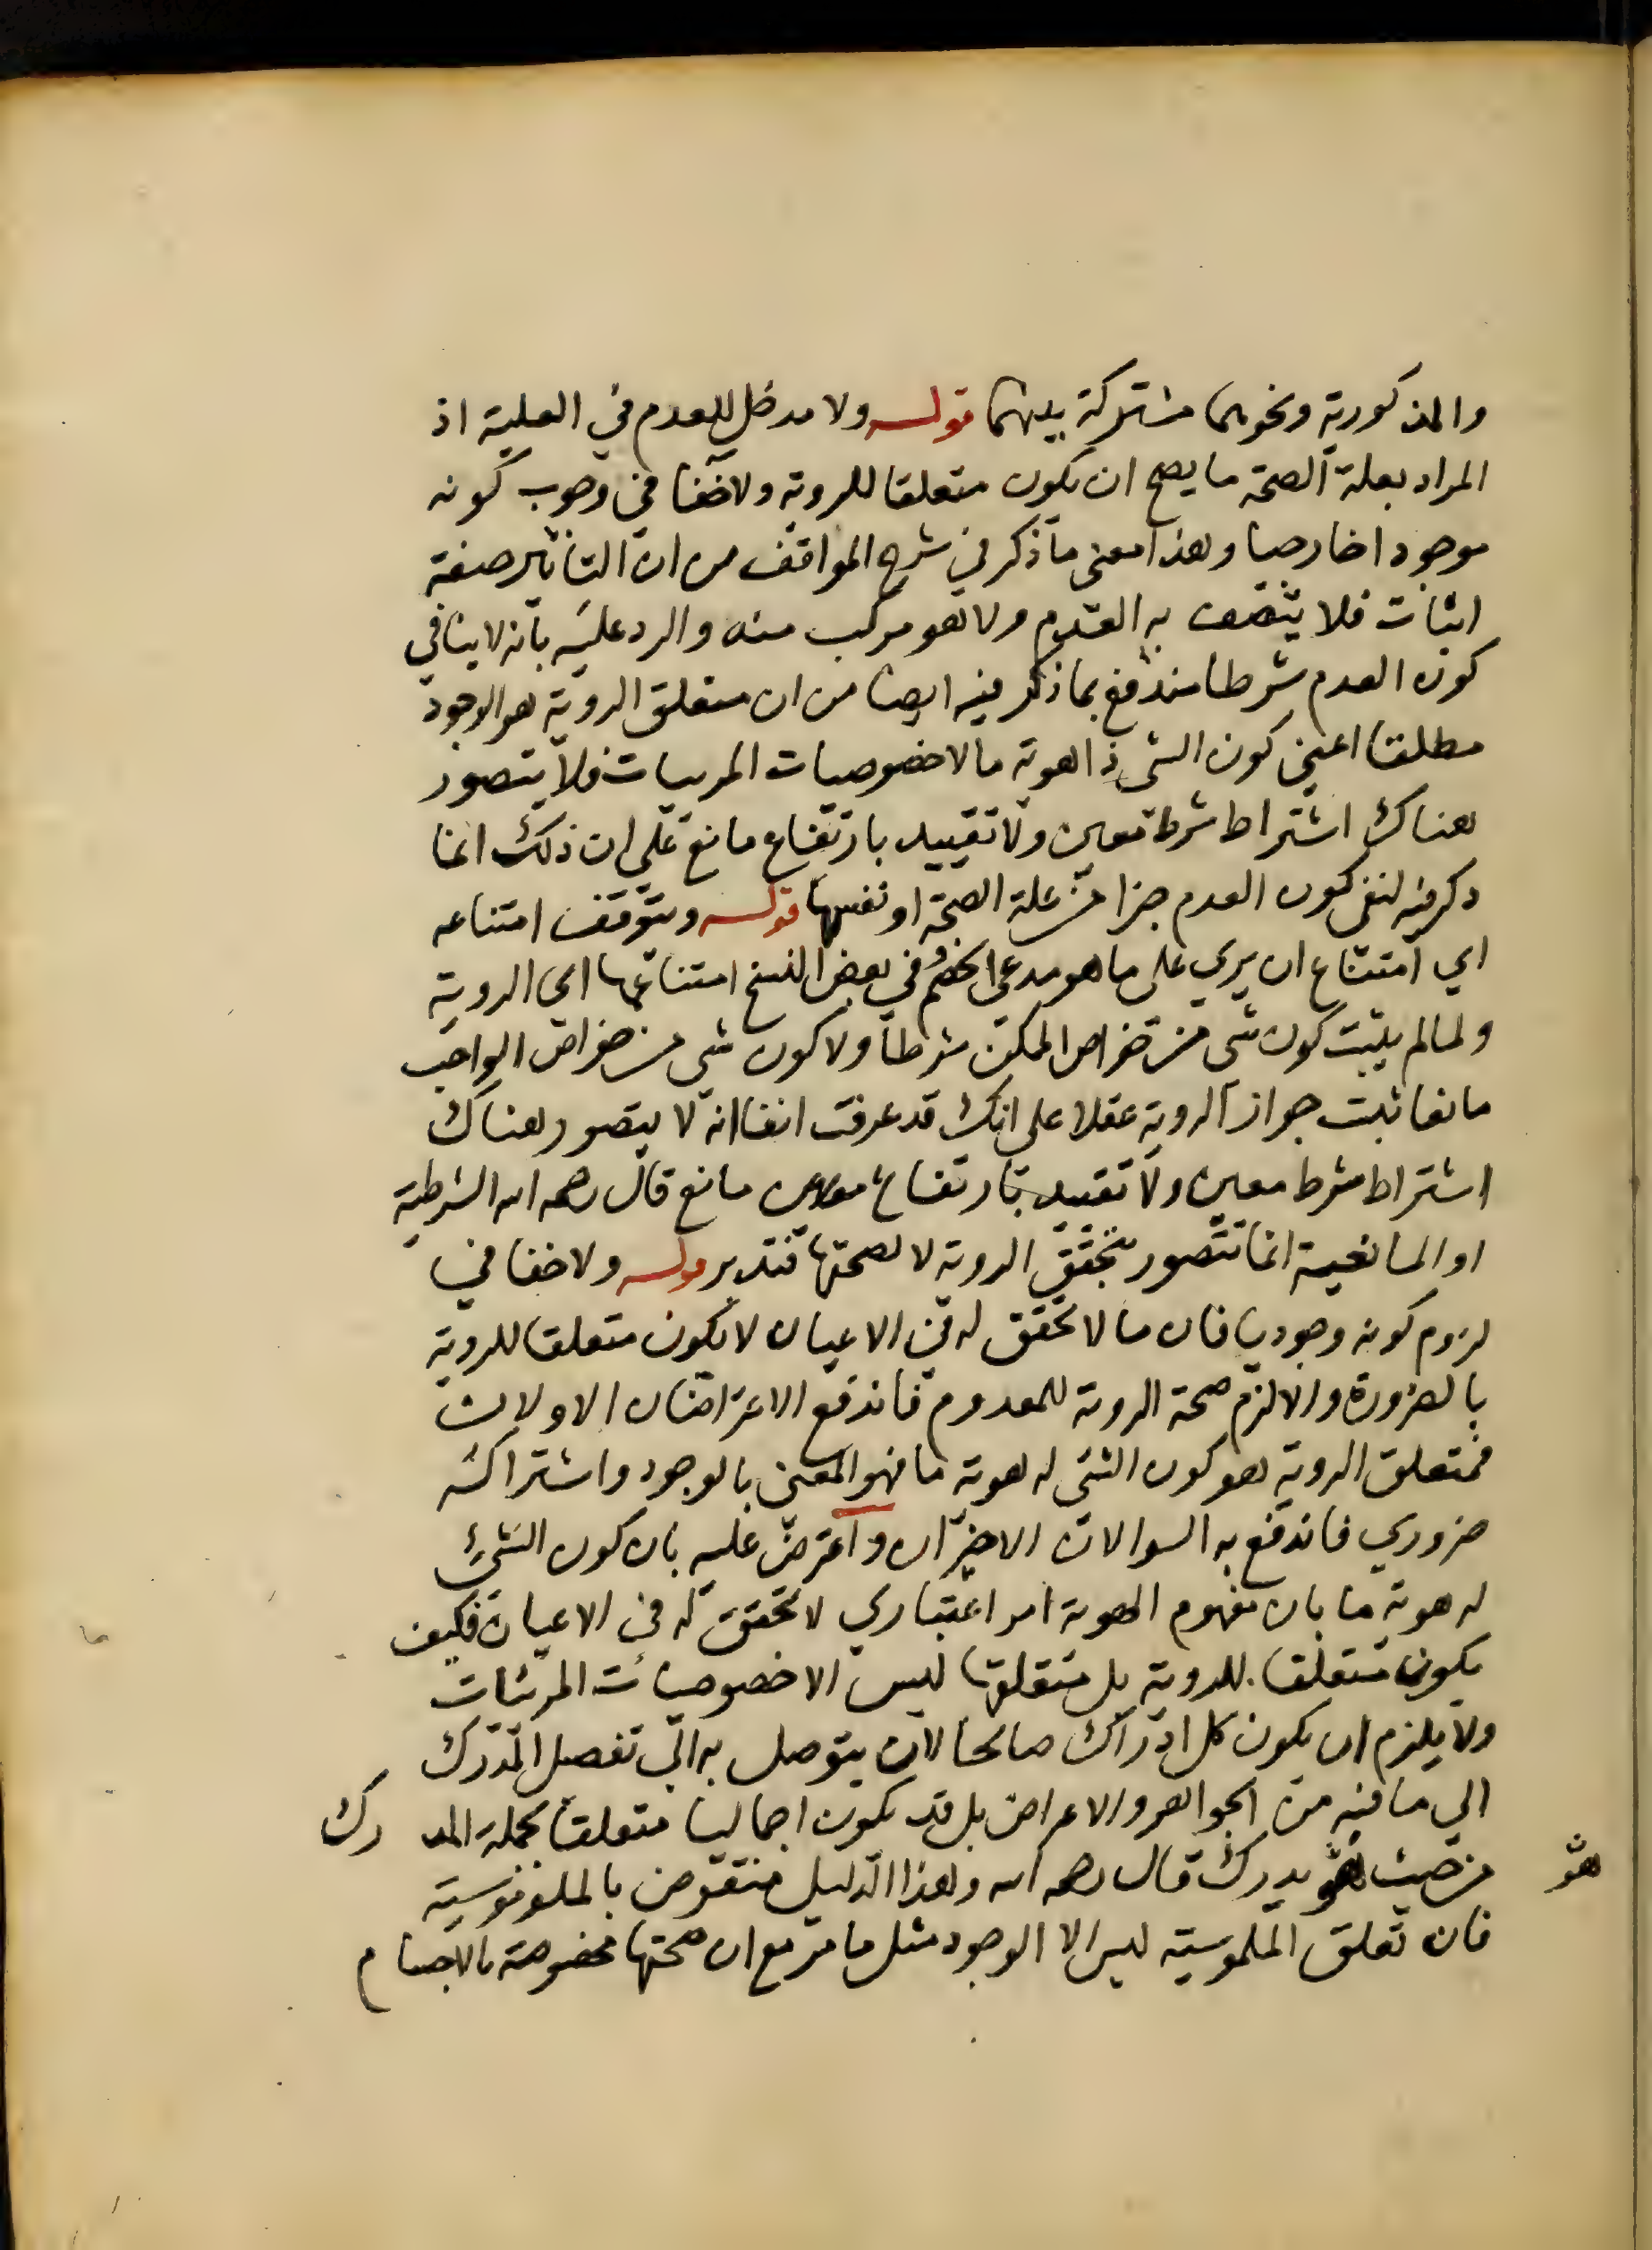 والمذكورية ونحوهما مشتركة بينهما قوله ولا مدخل للعدم في العلية اذ
المراد بعلة الصحة ما يصح ان يكون متعلقا للروية ولا خفا في وجوب كونه
موجودا خارجيا وهذا معنى ما ذكر في شرح المواقف من ان التاثير صفة
اثبات فلا يتصف به العدم ولا هو مركب منه والرد عليه بانه لا ينافي
كون العدم شرطا مندفع بما ذكر فيه ايضا من ان متعلق الروية هو الوجود
مطلقا اعني كون الشي ذا هوية ما لا خصوصيات المرييات فلا يتصور
هناك اشتراط شرط معين ولا تقييد بارتفاع مانع على ان ذلك انما
ذكر فيه لنفي كون العدم جزا من علة الصحة او نفسها قوله ويتوقف امتناعه
اي امتناع ان يري على ما هو مدعي الخصم وفي بعض النسخ امتناعها اي الروية
ولما لم يثبت كون شي من خواص الممكن شرطا ولا كون شي من خواص الواجب
مانعا ثبت جواز الروية عقلا على انك قد عرفت انفا انه لا يتصور هناك
اشتراط شرط معين ولا تقييد بارتفاع معين مانع قال رحمه الله الشرطية
او المانعية انما تتصور بتحقق الروية لا لصحتها فتدبر قوله ولا خفا في
لزوم كونه وجوديا فان ما لا تحقق له في الاعيان لا يكون متعلقا للروية
بالضرورة والا لزم صحة الروية للمعدوم فاندفع الاعتراضان الاولان
فمتعلق الروية هو كون الشي له هوية ما فهو المعنى بالوجود واشتراكه
ضروري فاندفع به السوالان الاخيران واعترض عليه بان كون الشيء
له هوية ما بان مفهوم الهوية امر اعتباري لا تحقق له في الاعيان فكيف
يكون متعلقا للروية بل متعلقها ليس الا خصوصيات المرئيات
ولا يلزم ان يكون كل ادراك صالحا لان يتوصل به الى تفصل المدرك
الي ما فيه من الجواهر والاعراض بل قد يكون اجماليا متعلقا بجملة المدرك
من حيث هو يدرك قال رحمه الله وهذا الدليل منتقوض بالملفوسية
هو
فان تعلق الملموسية ليس الا الوجود مثل ما مر مع ان صحتها مخصوصة بالاجسام